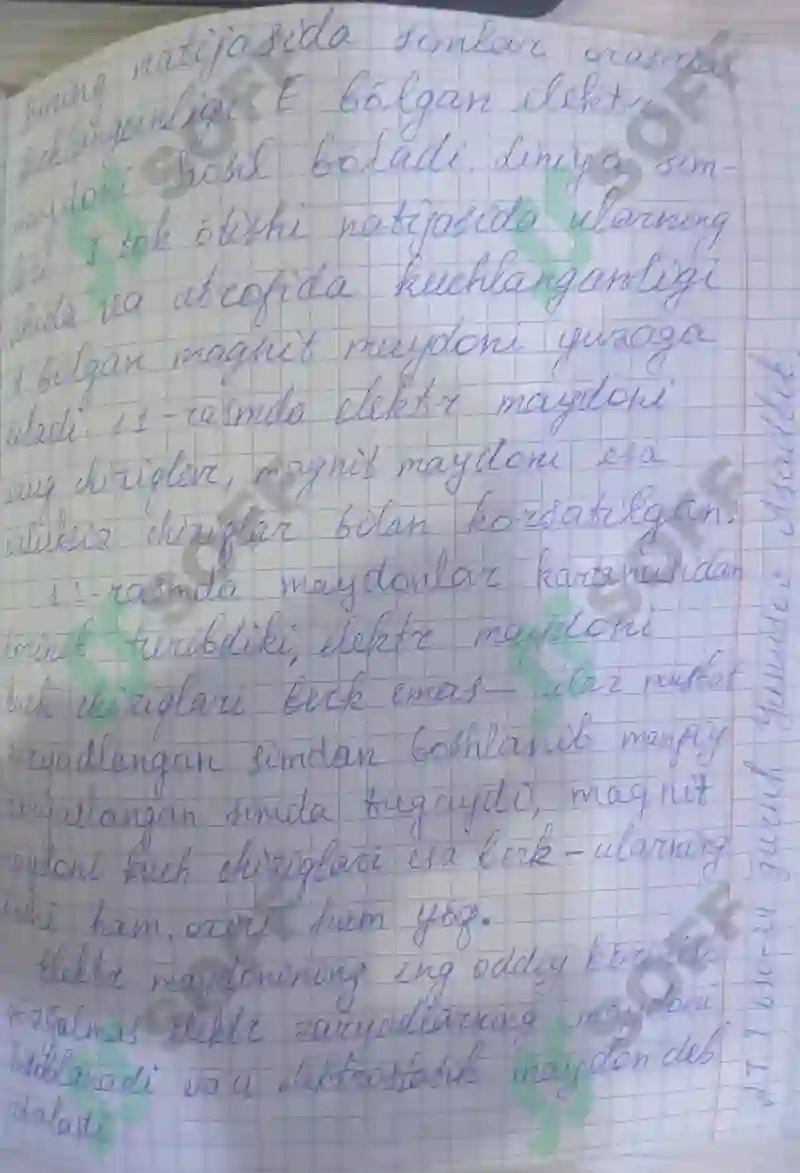 ning natijasida simlar orasida
kuchlanganligi E bòlgan elektr
maydoni hosil bòladi. Liniya sim-
I tok òtishi natijasida ularning
ichida va atrofida kuchlanganligi
bòlgan magnit maydoni yuzaga
keladi. 1.1-rasmda elektr maydoni
chiziqlari, magnit maydoni esa
uzluksiz chiziqlar bilan kòrsatilgan.
1.1-rasmda maydonlar
turibdiki, elektr maydoni
kuch chiziqlari berk emas - ular musbat
zaryadlangan simdan boshlanib manfiy
zaryadlangan simda tugaydi, magnit
maydoni kuch chiziqlari esa berk - ularning
boshi ham, oxiri ham yòq.
Elektr maydonining eng oddiy
elektr zaryadlarning maydoni
hisoblanadi va u elektrostatik maydon deb
ataladi
guruh
SOFF
SOFF
SOFF
SOFF
SOFF
SOFF